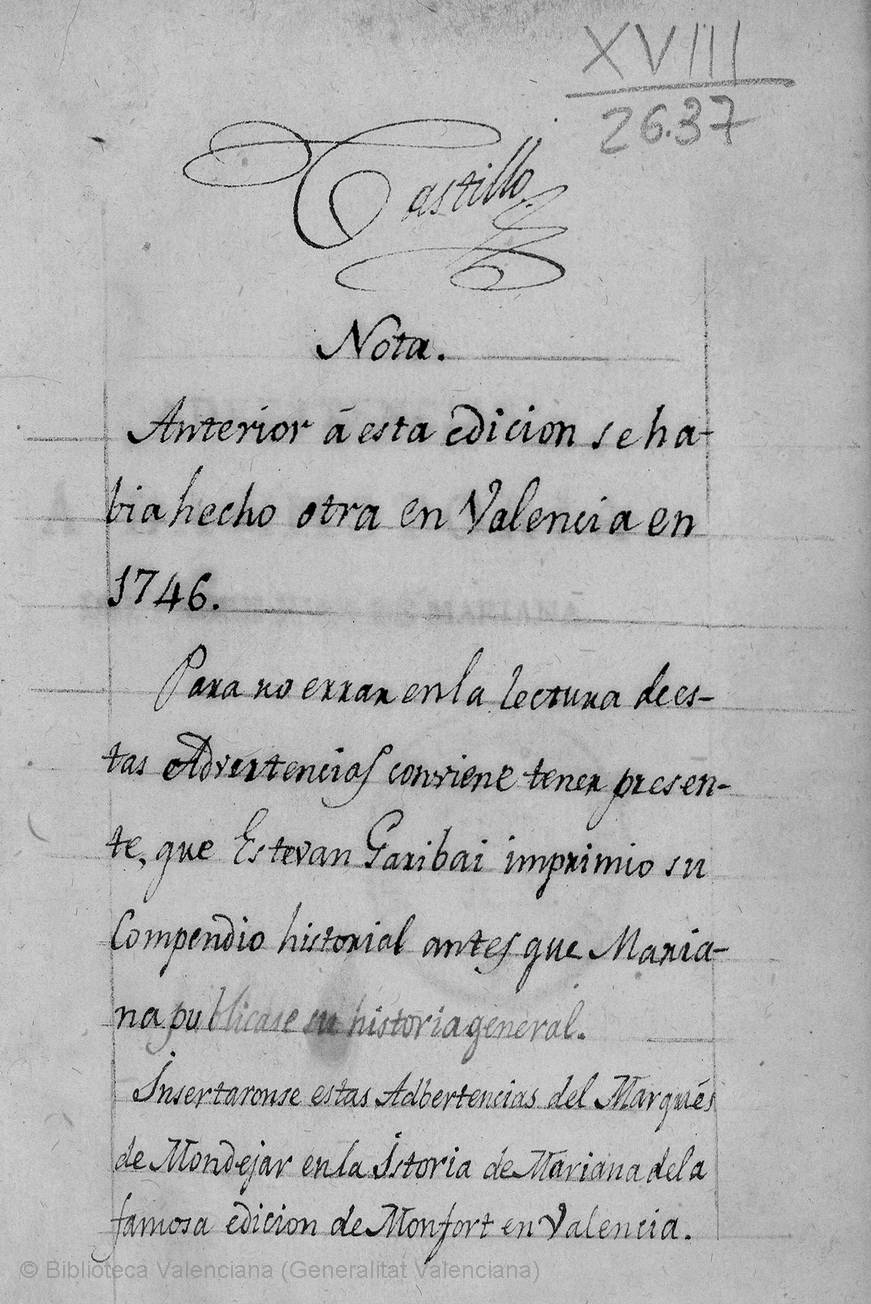 XVIII
2637
Castillo
Nota.
Anterior á esta edicion se ha-
bia hecho otra en Valencia en
1746.
Para no errar en la lectura de es-
tas Advertencias conviene tener presen-
te, que Estevan Garibai imprimio su
Compendio historial antes que Maria-
na publicase su historia general.
Insertaronse estas Adbertencias del Marqués
de Mondejar en la Istoria de Mariana de la
famosa edicion de Monfort en Valencia.
© Biblioteca Valenciana (Generalitat Valenciana)